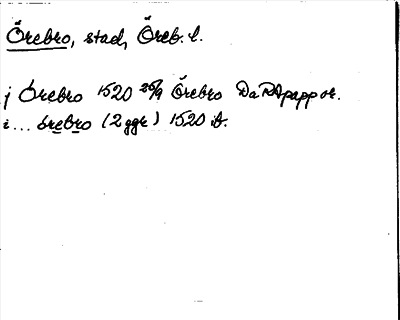 Örebro, stad, Öreb. l.
j Örebro 1520 26/9 Örebro DaRApapp or.
i... örebro (2 ggr) 1520 ib.